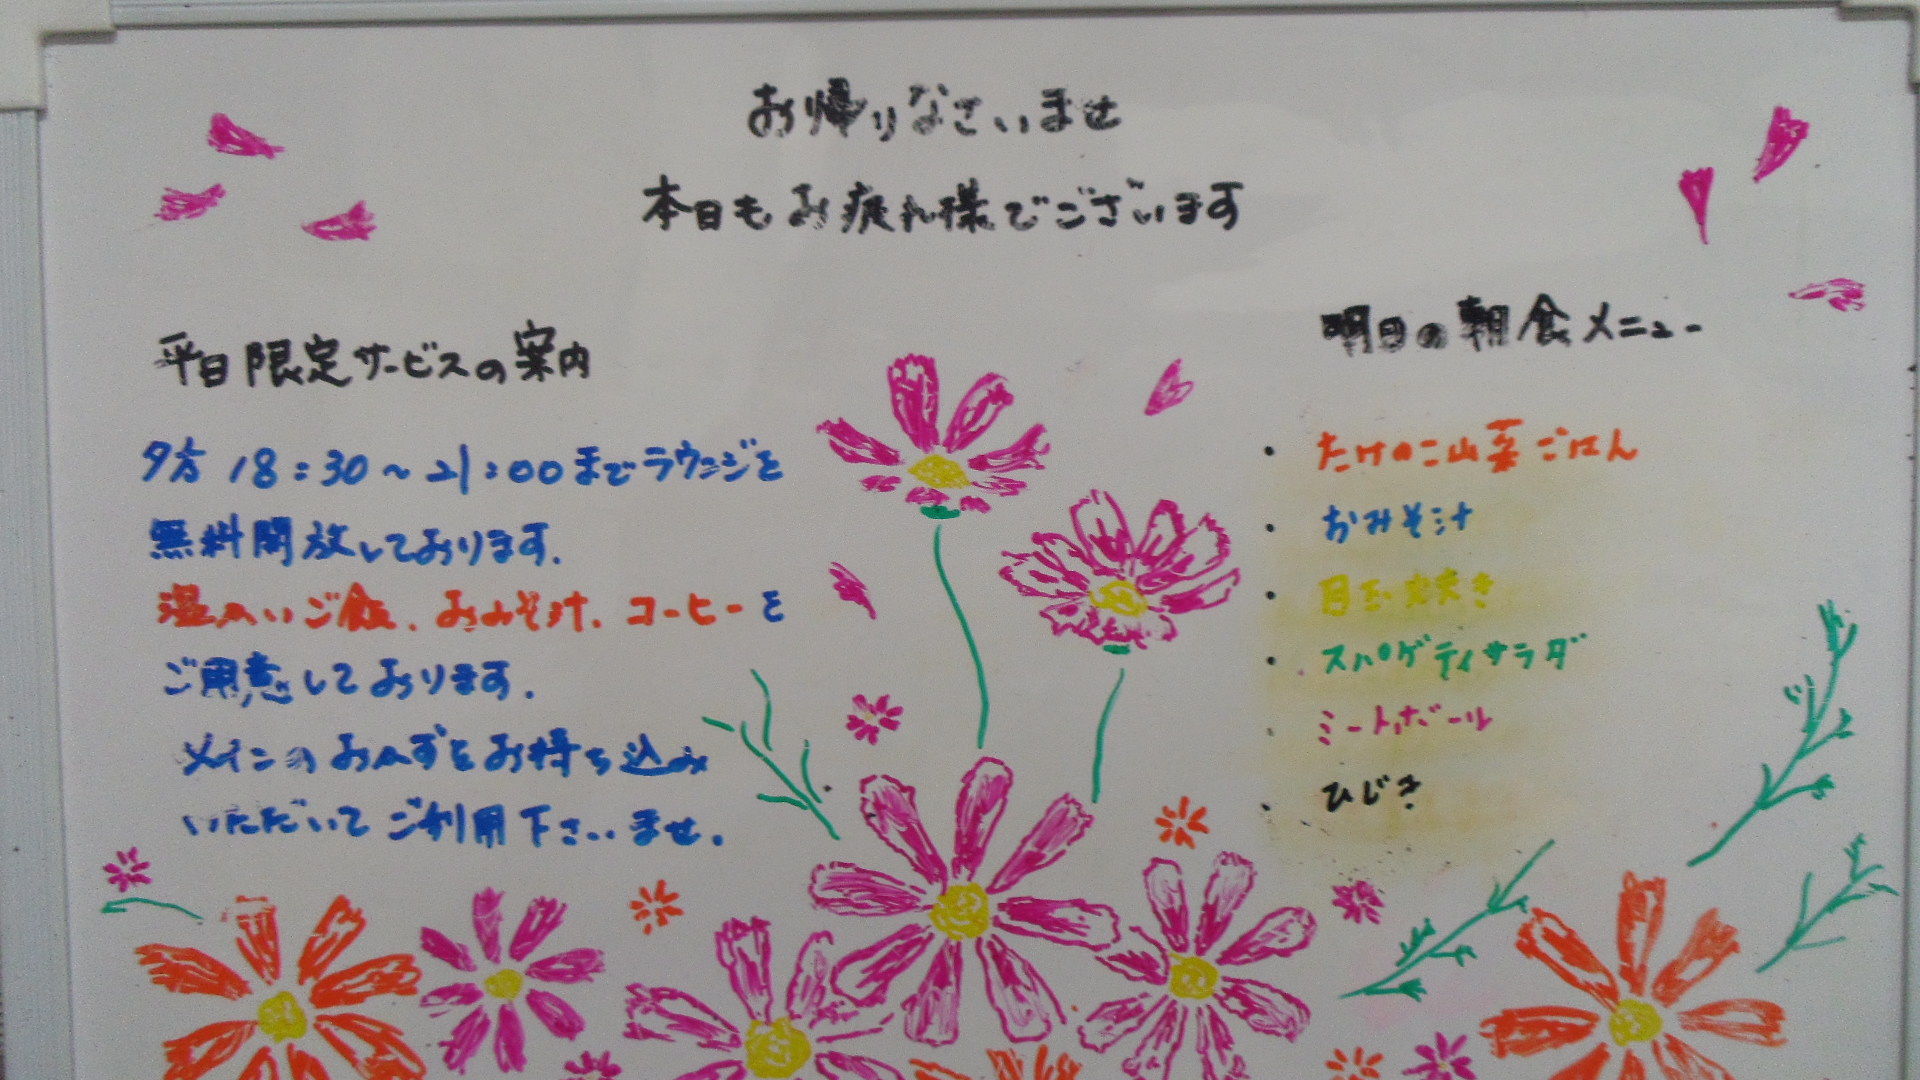 お帰りなさいませ
本日もお疲れ様でございます
平日限定サービスの案内
夕方 18:30～21:00までラウンジを
無料開放しております.
温かいご飯、おみそ汁、コーヒーを
ご用意しております.
メインのおかずをお持ち込み
いただいてご利用下さいませ.
明日の朝食メニュー
・たけのこ山菜ごはん
・おみそ汁
・目玉焼き
・スパゲティサラダ
・ミートボール
・ひじき